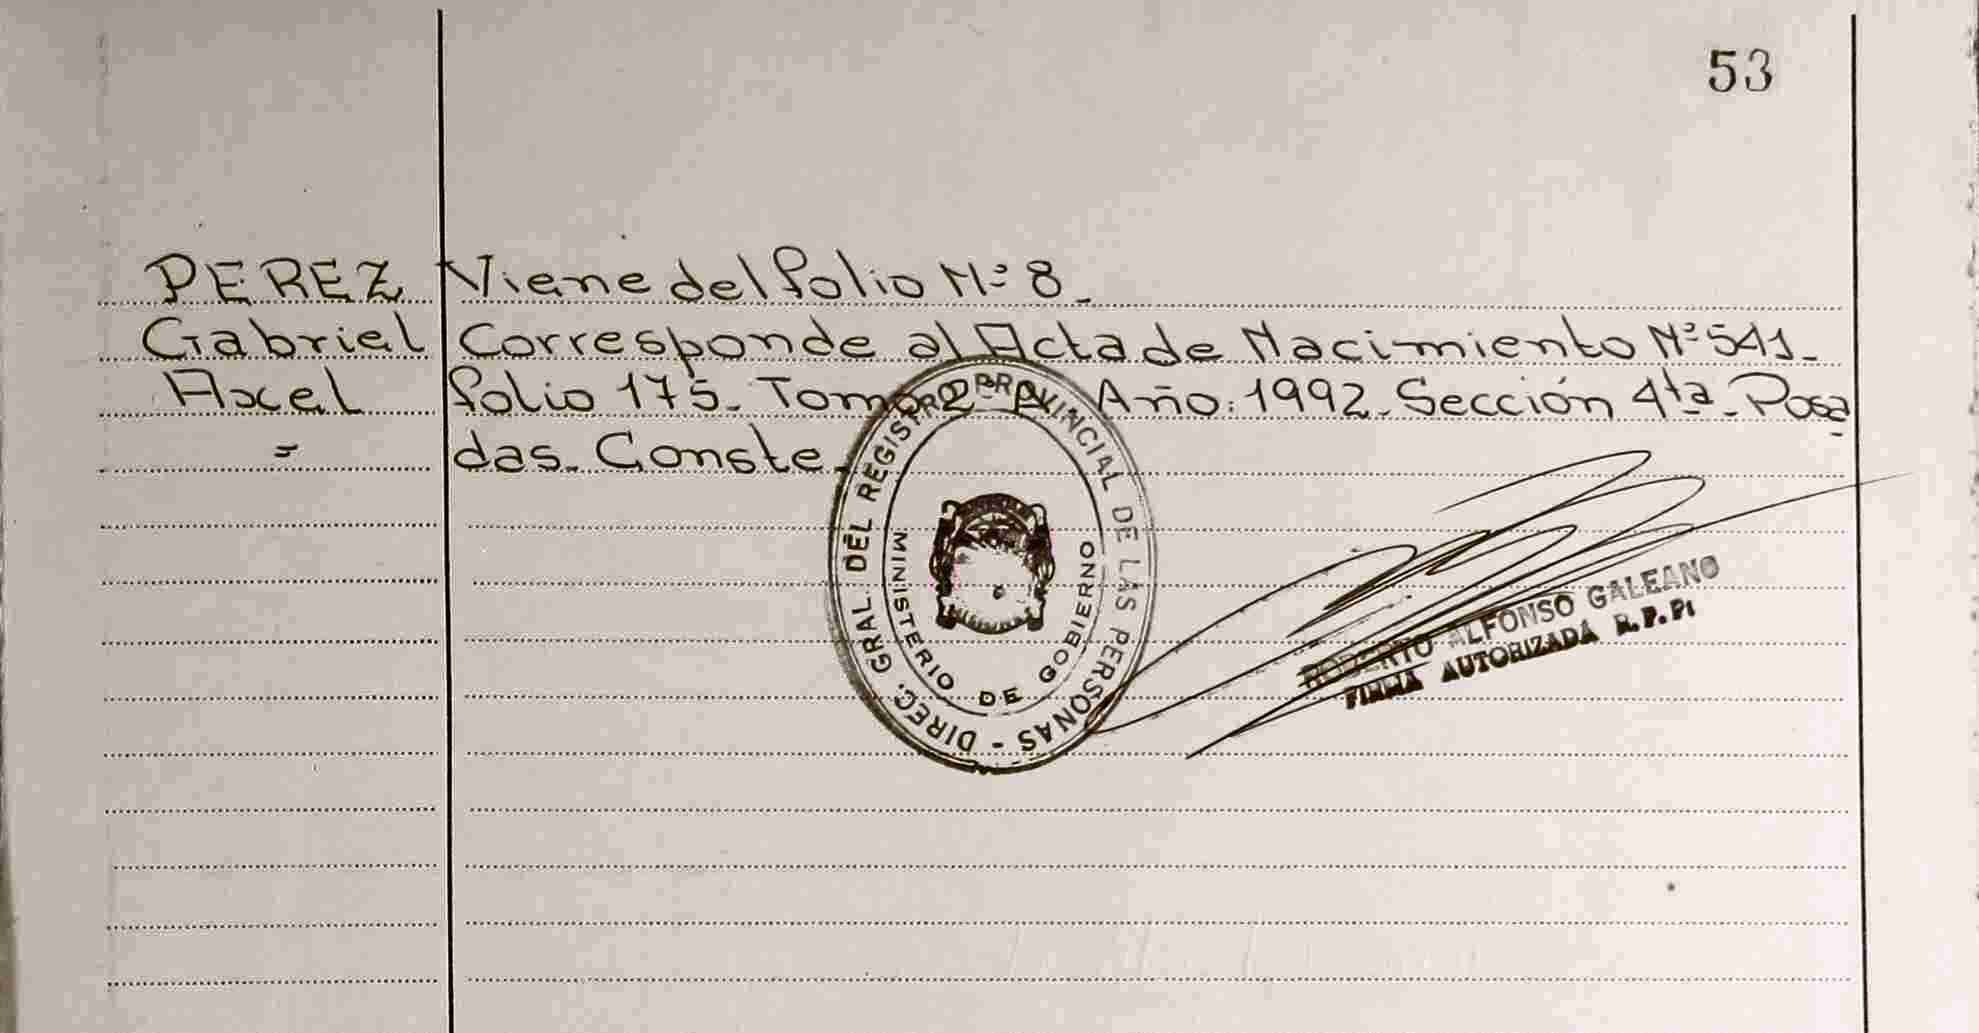 53
PEREZ Viene del folio Nº 8_
Gabriel Corresponde al Acta de Nacimiento Nº 541_
Axel folio 175_ Tomo 2º Año: 1992_ Sección 4ta_ Posa
= das_ Conste_
DIREC. GRAL. DEL REGISTRO PROVINCIAL DE LAS PERSONAS -
MINISTERIO DE GOBIERNO
ROBERTO ALFONSO GALEANO
FIRMA AUTORIZADA R.P.P.